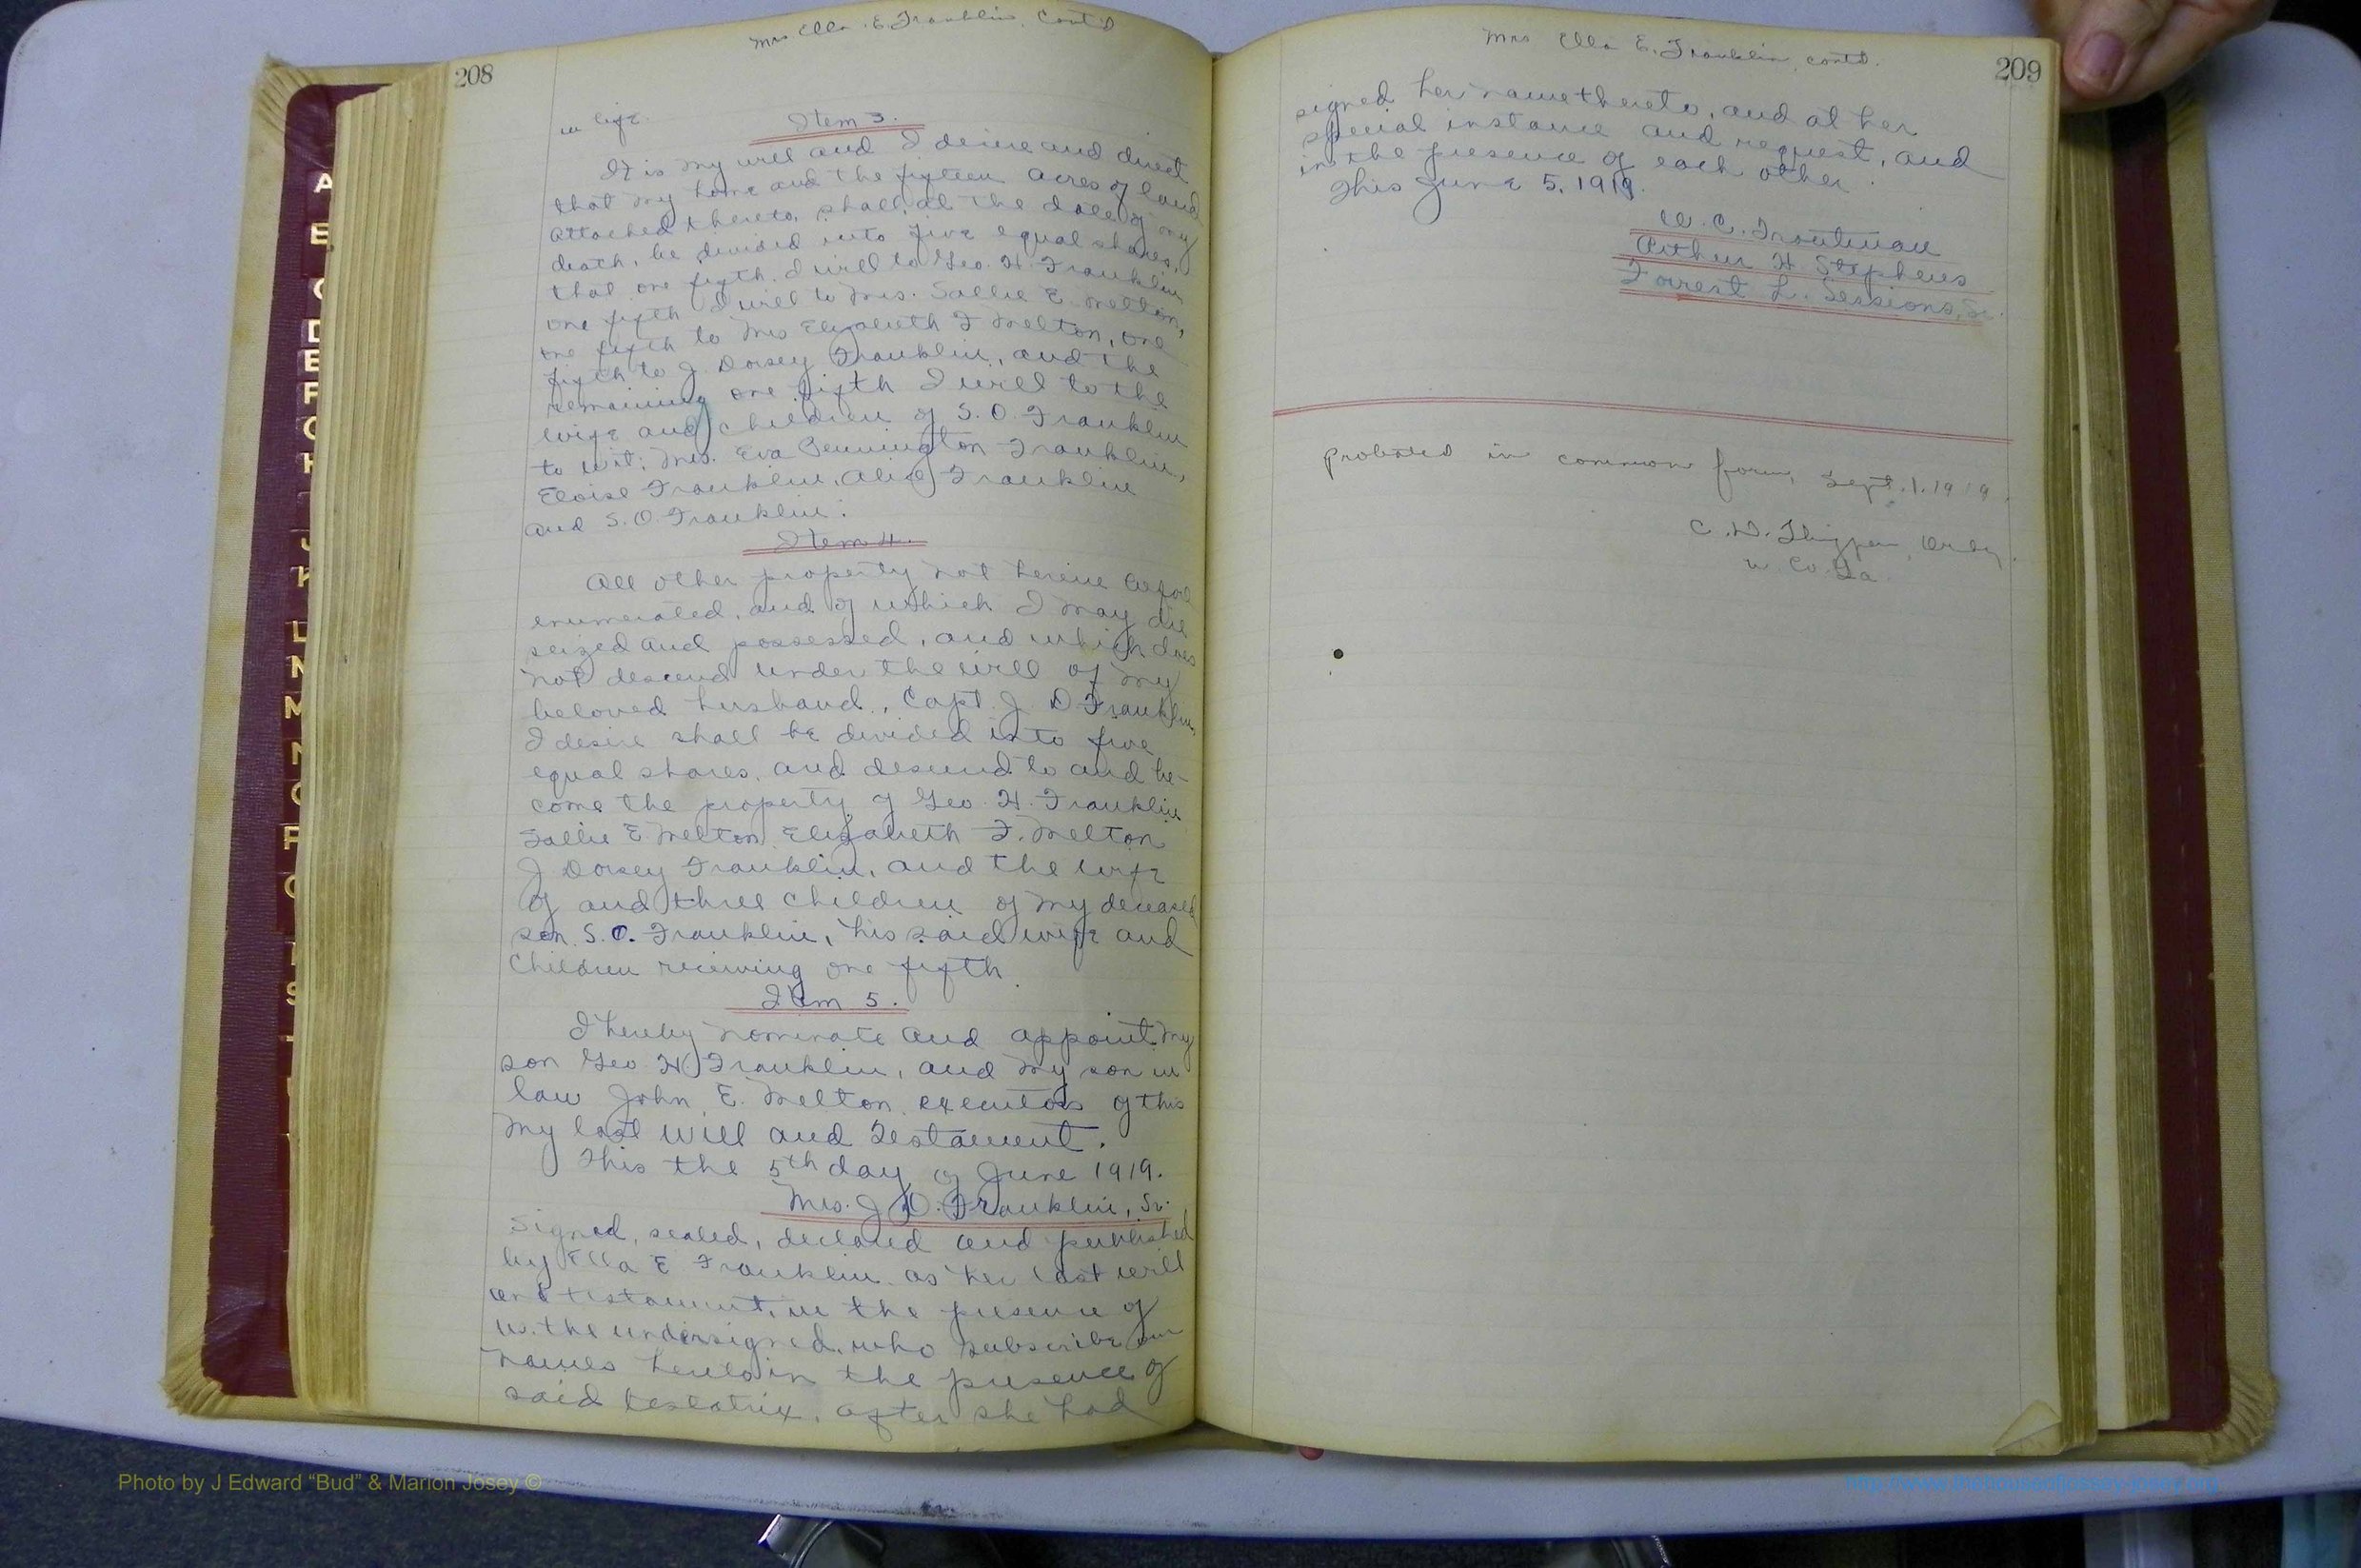 Mrs Ella E. Franklin, Cont'd
208
in life.
Item 3.
It is my will and I desire and direct
that my home and the fifteen acres of land
attached thereto, shall, at the date of my
death, be divided into five equal shares,
that one fifth I will to Geo. H. Franklin
one fifth I will to Mrs. Sallie E. Melton,
one fifth to Mrs Elizabeth F Melton, one
fifth to J. Dorsey Franklin, and the
remaining one fifth I will to the
wife and children of S. O. Franklin
to wit; Mrs. Eva Pennington Franklin,
Eloise Franklin, Alice Franklin
and S. O. Franklin.
Item 4.
All other property not herein before
enumerated, and of which I may die
seized and possessed, and which does
not descend under the will of my
beloved husband, Capt. J. D Franklin,
I desire shall be divided into five
equal shares, and descend to and be-
come the property of Geo. H. Franklin
Sallie E Melton, Elizabeth F. Melton
J Dorsey Franklin, and the wife
of and three children of my deceased
son S. O. Franklin, his said wife and
children receiving one fifth.
Item 5.
I hereby nominate and appoint my
son Geo H Franklin, and my son in
law John E. Melton executors of this
my last will and testament.
This the 5th day of June 1919.
Mrs. J. D. Franklin, Sr.
Signed, sealed, declared and published
by Ella E Franklin as her last will
and testament, in the presence of
us, the undersigned, who subscribe our
names hereto in the presence of
said testatrix, after she had
Mrs Ella E. Franklin, contd.
209
signed her name thereto, and at her
special instance and request, and
in the presence of each other.
This June 5, 1919.
W. C. Troutman
Arthur H. Stephens
Forrest L. Sessions, Sr.
Probated in common form, Sept. 1. 1919.
C. D. Thigpen, Ordy.
W. Co. Ga
A
E
C
D
E
F
G
H
I
J
K
L
N
M
N
O
P
Q
R
S
T
Photo by J Edward “Bud” & Marion Josey ©
http://www.thehouseofjossey-josey.org